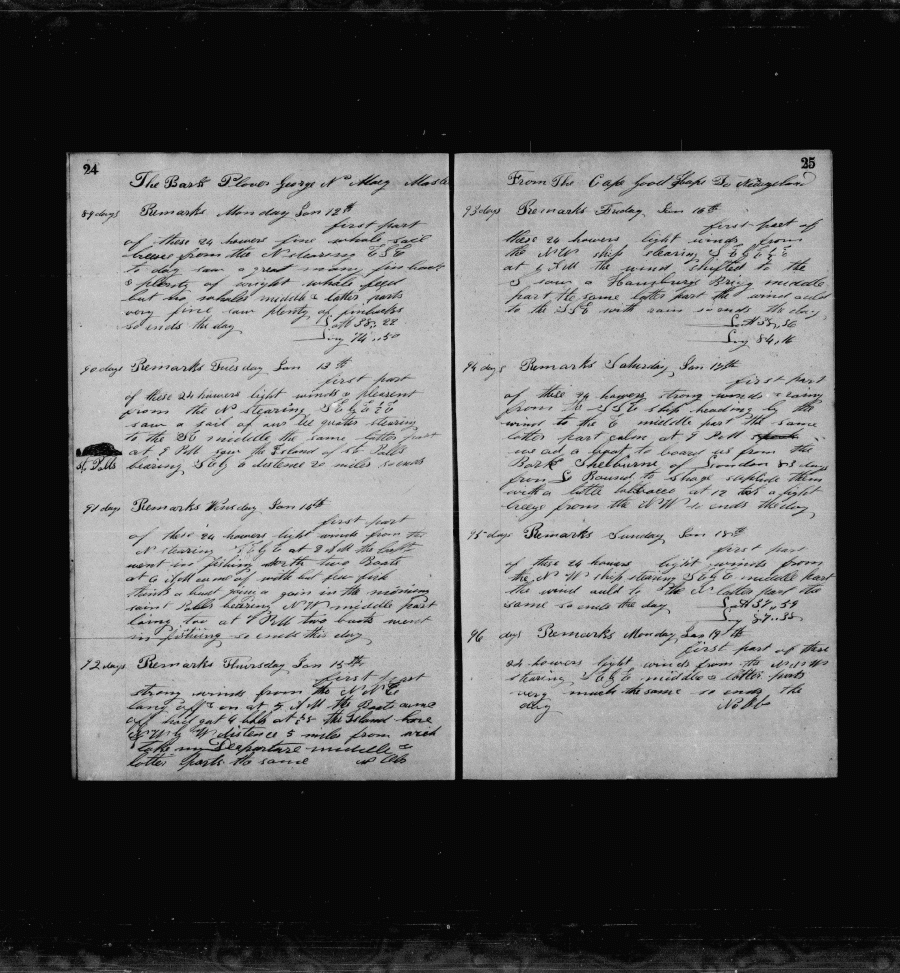 24
The Bark Plover George N Macy Master
89 days Remarks Monday Jan 12th
first part
of these 24 howers fine whole sail
breese from the N stearing ESE
to day saw a great many finbacks
& plenty of wright whale feed
but no whales middle & latter parts
very fine saw plenty of finbacks
so ends the day Lat 38,,22
Long 74,,50
90 days Remarks Tuesday Jan 13th
first part
of these 24 howers light winds & plesent
from the N stearing SE by E
saw a sail of our lee quarter stearing
to the SE middle the same latter part
at 9 PM saw the Island of St Palls
St. Palls bearing SE by E distence 20 miles so ends
91 days Remarks Wensday Jan 14th
first part
of these 24 howers light winds from the
N stearing SE by E at 2 AM the
went in fishing with two Boats
at 6 AM came of with but few fish
think a haul gaine a gain in the morning
saint Palls bearing NW middle part
laing too at 7 PM two boats went
in fishing so ends this day
92 days Remarks Thursday Jan 15th
first part
strong winds from the NNE
lang off & on at 5 AM the Boats came
off had got 4 bbls at the Island bore
NW by W distence 5 miles from wich
I take my Desparture middle &
latter parts the same no Obs
25
From The Cape Good Hope To
93 days Remarks Friday Jan 16th
first part of
these 24 howers light winds from
the NW ship stearing SE by E
at 6 AM the wind shifted to the
S saw a Hamburg Brig middle
part the same latter part the wind auld
to the SSE with rain so ends the day
Lat 38,,36
Long 84,,16
94 days Remarks Saturday Jan 17th
first part
of these 24 howers strong winds & rainy
from the SSE ship heading by the
wind to the E middle part the same
latter part calm at 9 PM
we ad a boat to board us from the
Bark Shelburne of London 83 days
from L Bound to suplide them
with a little tobbacco at 12 a light
breeze from the NW so ends the day
95 days Remarks Sunday Jan 18th
first part
of these 24 howers light winds from
the NW ship stearing SE by E middle part
the wind auld to the N latter part the
same so ends the day Lat 39,,59
Long 87,,35
96 days Remarks Monday Jan 19th
first part of these
24 howers light winds from the NNW
stearing SE by E middle & latter parts
very much the same so ends the
day No Obs